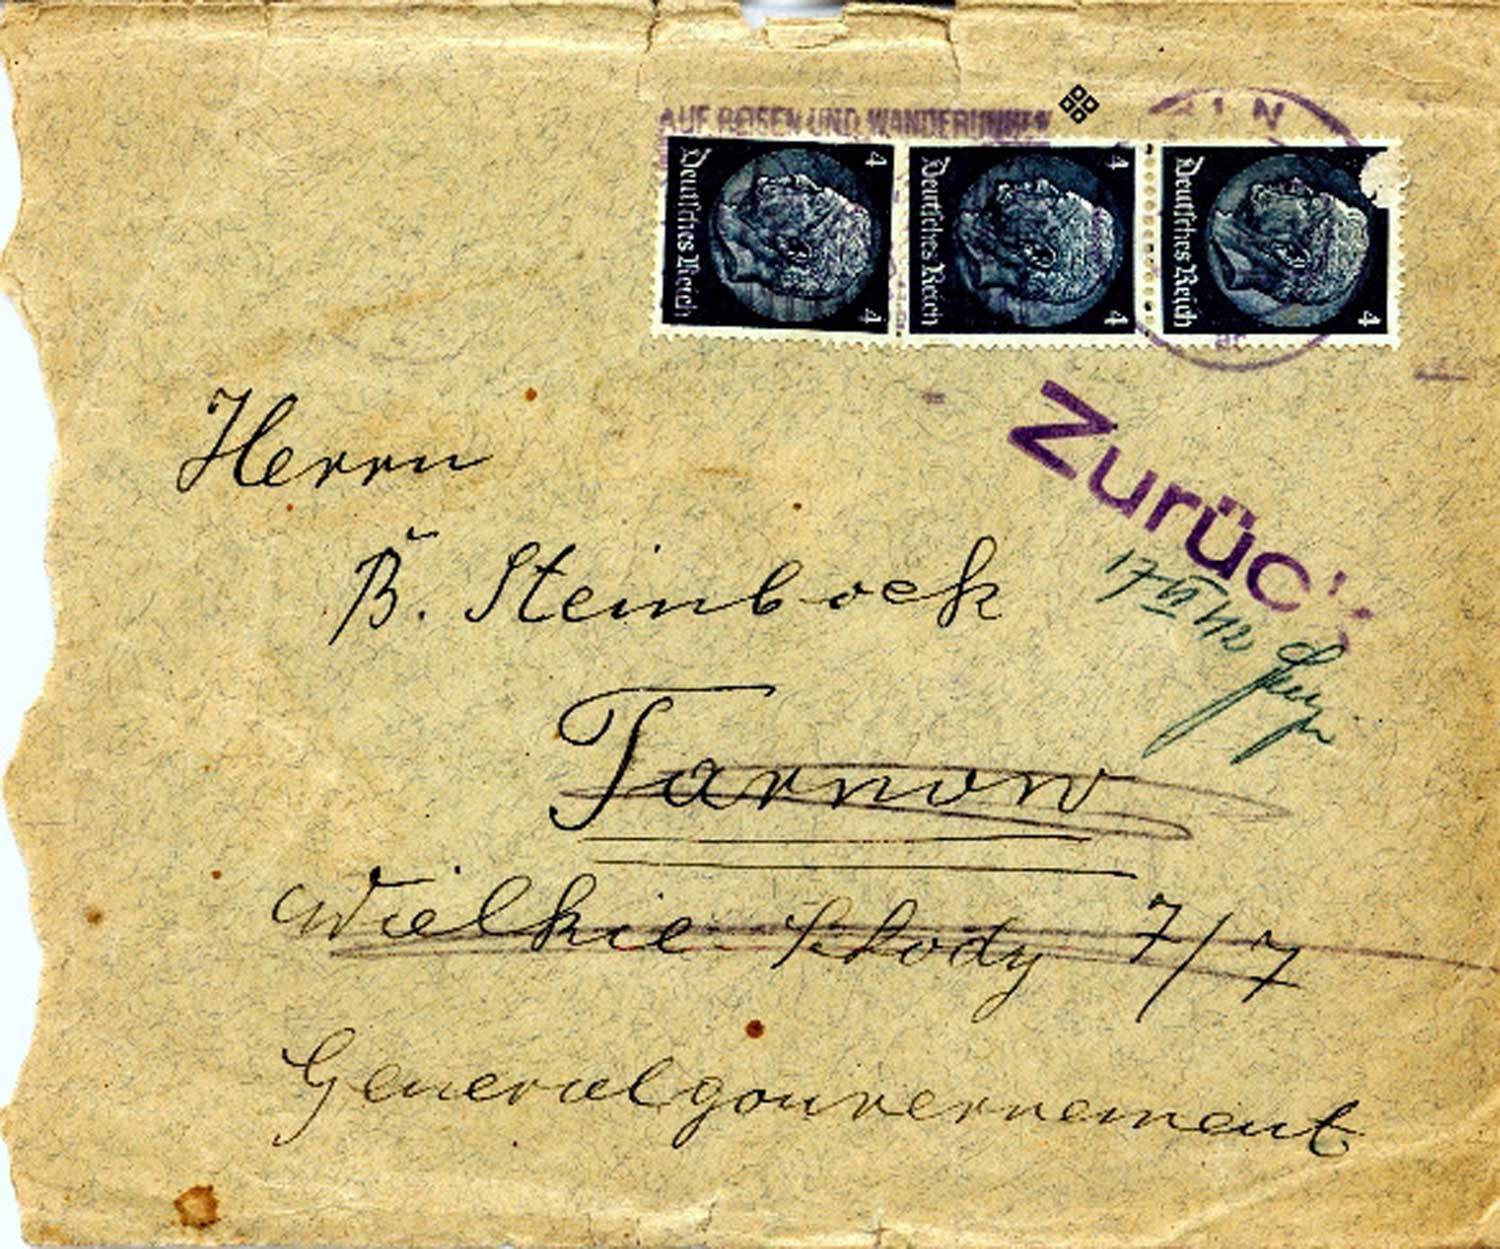 AUF REISEN UND WANDERUNGEN
4 Deutsches Reich 4
4 Deutsches Reich 4
4 Deutsches Reich 4
Zurück
17 VI 42
Herrn
B. Steinbock
Tarnow
Wielkie Schody 7/7
Generalgouvernement